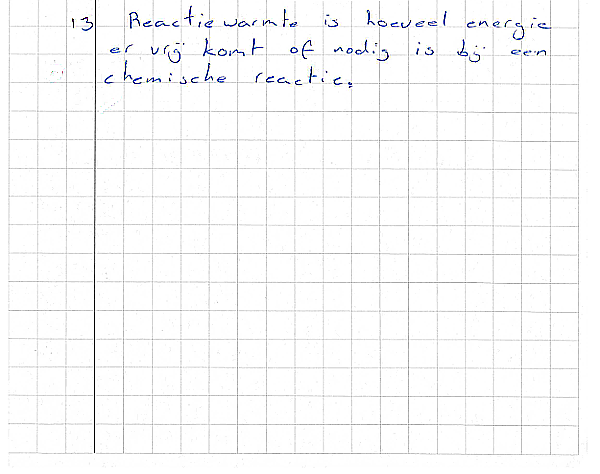 13 Reactie warmte is hoeveel energie
er vrij komt of nodig is bij een
chemische reactie.